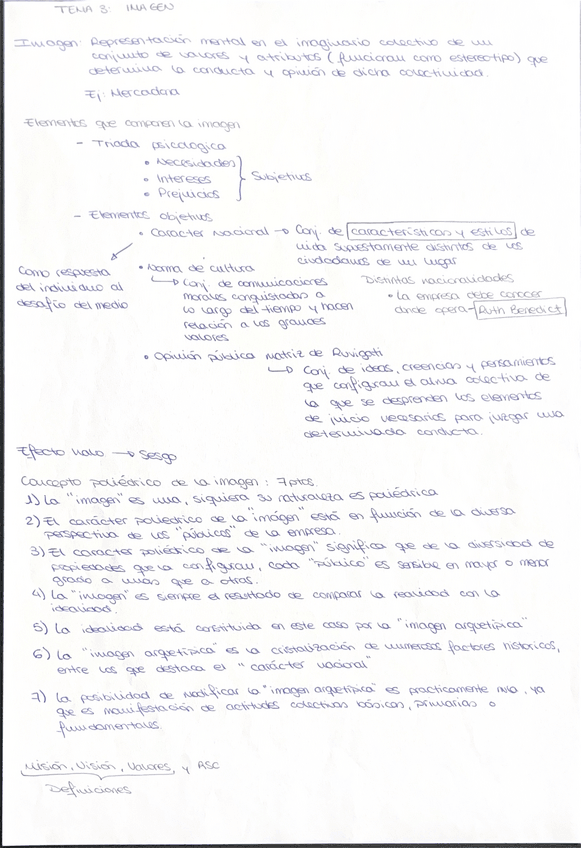 TEMA 3: IMAGEN
Imagen: Representación mental en el imaginario colectivo de un
conjunto de valores y atributos (funcionan como estereotipo) que
determina la conducta y opinión de dicha colectividad.
Ej: Mercadona
Elementos que componen la imagen
- Triada psicologica
• Necesidades
• Intereses
• Prejuicios
Subjetivos
- Elementos objetivos
• Caracter Nacional → Conj. de características y estilos de
vida supuestamente distintos de los
ciudadanos de un lugar
Como respuesta
del individuo al
desafío del medio
• Norma de cultura
→ Conj. de comunicaciones
morales conquistadas a
lo largo del tiempo y hacen
relación a los grandes
valores
Distintas nacionalidades
• La empresa debe conocer
donde opera - Ruth Benedict
• Opinión pública matriz de Ruvigati
→ Conj. de ideas, creencias y pensamientos
que configuran el alma colectiva de
la que se desprenden los elementos
de juicio necesarios para juzgar una
determinada conducta.
Efecto Halo → Sesgo
Concepto poliédrico de la imagen: 7 ptos.
1) La "imagen" es una, siquiera su naturaleza es poliédrica
2) El carácter poliedrico de la "imágen" está en función de la diversa
perspectiva de los "públicos" de la empresa.
3) El caracter poliédrico de la "imagen" significa que de la diversidad de
propiedades que la configuran, cada "público" es sensible en mayor o menor
grado a unas que a otras.
4) La "imagen" es siempre el resultado de comparar la realidad con la
idealidad.
5) La idealidad está constituida en este caso por la "imagen arquetípica"
6) La "imagen arquetípica" es la cristalización de numerosos factores historicos,
entre los que destaca el "carácter nacional"
7) La posibilidad de modificar la "imagen arquetípica" es practicamente nula, ya
que es manifestación de actitudes colectivas básicas, primarias o
fundamentales.
Misión, Visión, Valores, y RSC
Definiciones